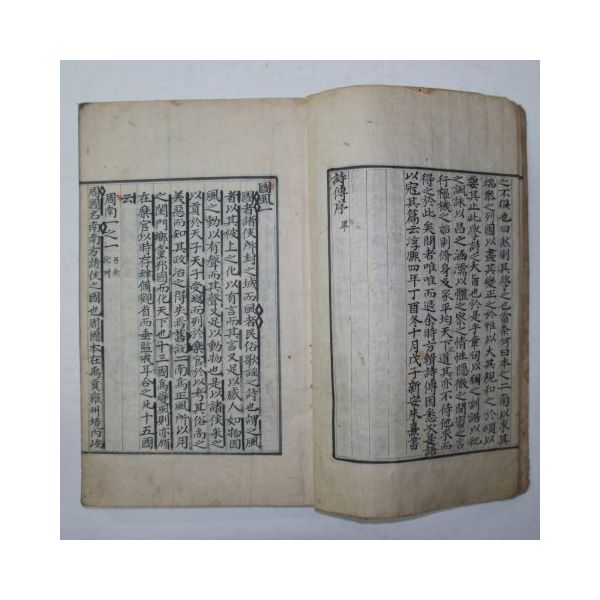 之不侵也曰然則其學之也當奈何曰本之二南以求其
端參之列國以盡其變正之於雅以大其規和之於頌以
要其止此學詩之大旨也於是乎章句以綱之訓詁以紀
之諷詠以昌之涵濡以體之察之情性隱微之間審之言
行樞機之始則修身及家平均天下道其亦不待他求而
得之於此矣問者唯唯而退余時方輯詩傳因悉次是語
以冠其篇云淳熙四年丁酉冬十月戊子新安朱熹書
詩傳序
國風一
國者諸侯所封之域而風者民俗歌謠之詩也謂之風
者以其被上之化以有言而其言又足以感人如物因
風之動以有聲而其聲又足以動物也是以諸侯采之
以貢於天子天子受之而列於樂官於以考其俗尚之
美惡而知其政治之得失焉舊說二南為正風所以用
之閨門鄉黨邦國而化天下也十三國為變風則亦領
在樂官以時存肄備觀省而垂監戒耳合之凡十五國
云
周南一之一
周國名南南方諸侯之國也周國本在禹貢雍州境內岐